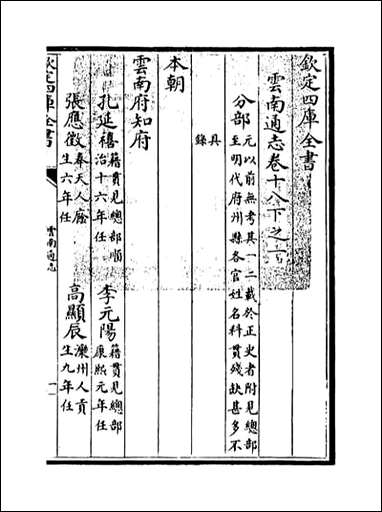 欽定四庫全書
雲南通志卷十八下之一
分部元以前無考其一二載於正史者附見總部
至明代府州縣各官姓名科貫殘缺甚多不
具
錄
本朝
雲南府知府
孔延禧藉貫見總部順
治十六年任
李元陽藉貫見總部
康熙元年任
張應徵奉天人廕
生六年任
高顯辰灤州人貢
生九年任
欽定四庫全書
雲南通志
一